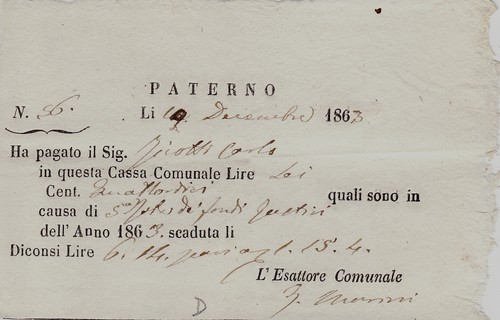 PATERNO
N. 36. Li 19 Decembre 1863
Ha pagato il Sig. Carlo
in questa Cassa Comunale Lire Sei
Cent. Quattordici quali sono in
causa di fondi
dell'Anno 1863. scaduta li
Diconsi Lire 6. 14. pari a 15. 4.
L'Esattore Comunale
D